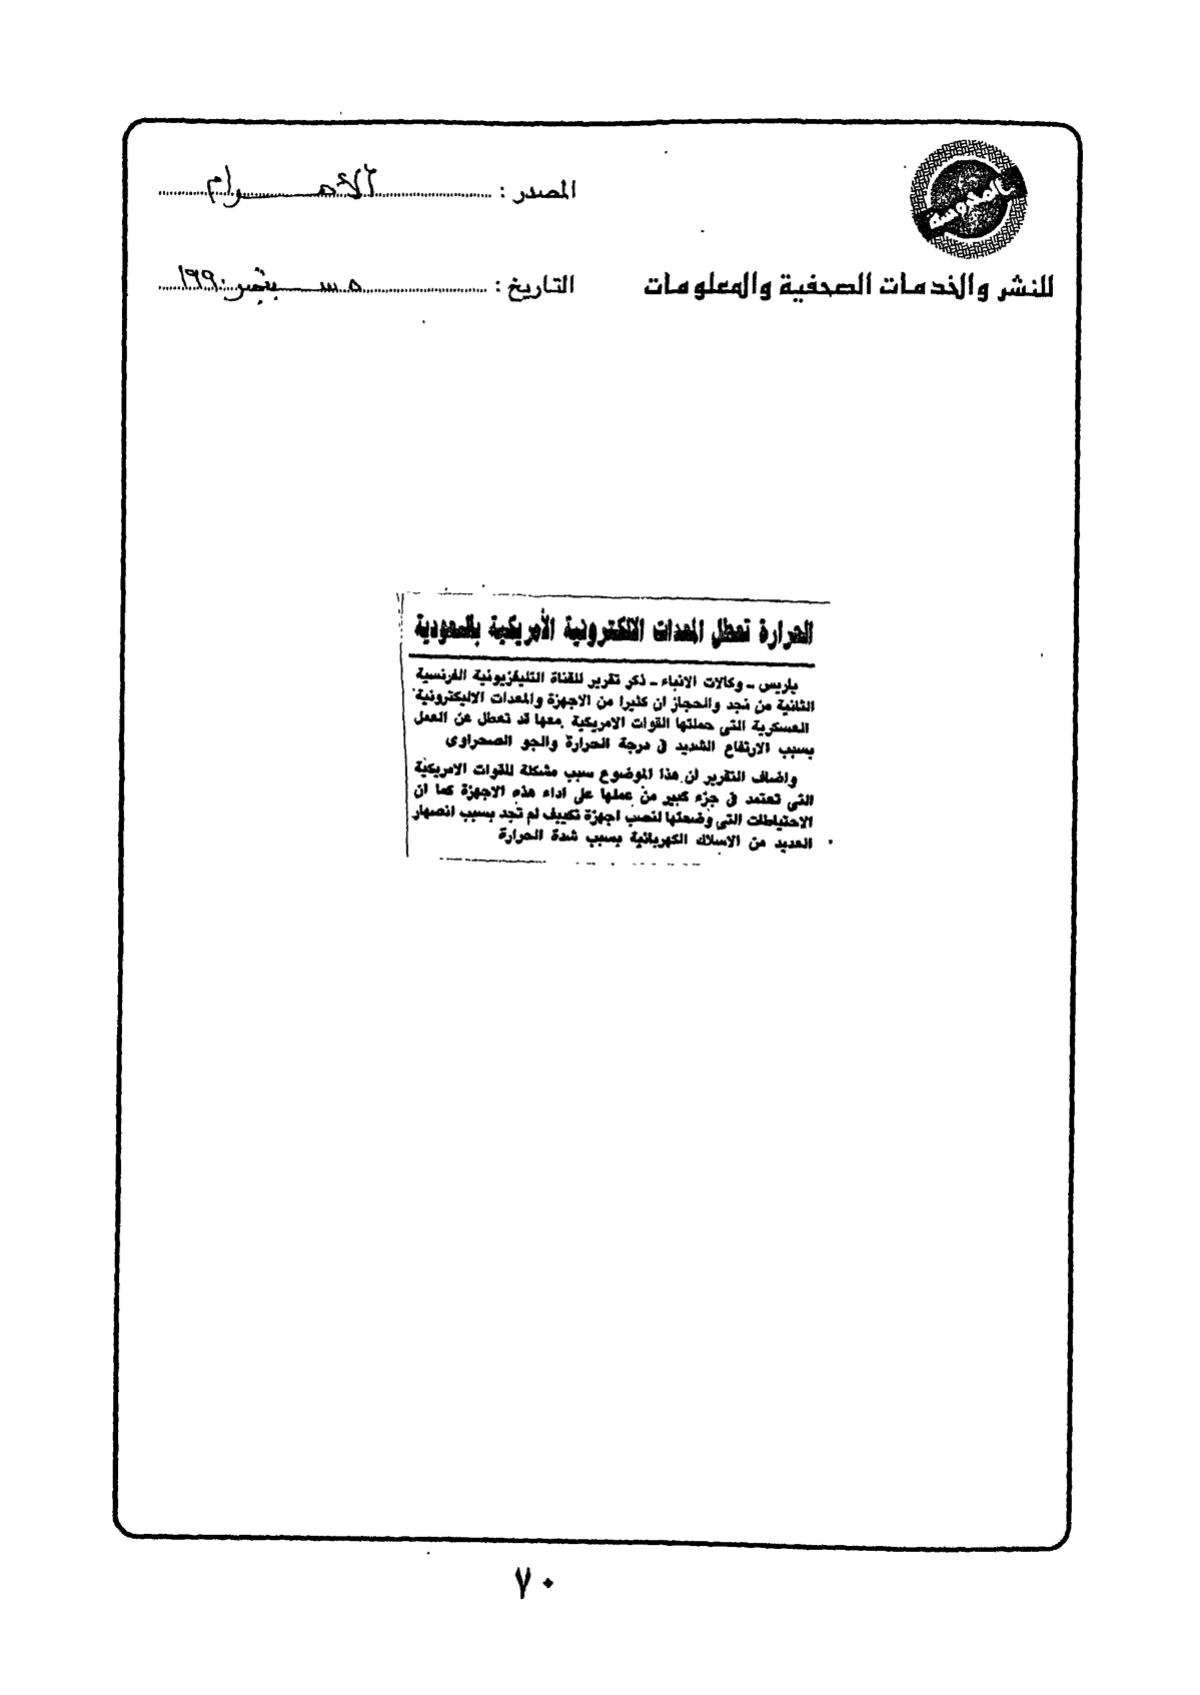 المصدر : الأهرام
للنشر والخدمات الصحفية والمعلومات
التاريخ : ٥ سبتمبر ١٩٩٠
الحرارة تعطل المعدات الالكترونية الأمريكية بالسعودية
باريس - وكالات الانباء - ذكر تقرير للقناة التليفزيونية الفرنسية
الثانية من نجد والحجاز ان كثيرا من الاجهزة والمعدات الاليكترونية
العسكرية التى حملتها القوات الامريكية معها قد تعطل عن العمل
بسبب الارتفاع الشديد فى درجة الحرارة والجو الصحراوى
واضاف التقرير ان هذا الموضوع سبب مشكلة للقوات الامريكية
التى تعتمد فى جزء كبير من عملها على اداء هذه الاجهزة كما ان
الاحتياطات التى وضعتها لنصب اجهزة تكييف لم تجد بسبب انصهار
العديد من الاسلاك الكهربائية بسبب شدة الحرارة
٧٠